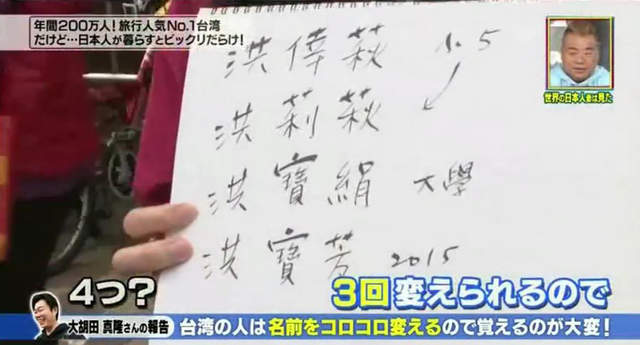 年間200万人！旅行人気No.1台湾
だけど…日本人が暮らすとビックリだらけ！
世界の日本人妻は見た
洪偉萩 小5
洪莉萩
洪寶絹 大學
洪寶芳 2015
4つ？
3回変えられるので
大胡田 真隆さんの報告
台湾の人は名前をコロコロ変えるので覚えるのが大変！